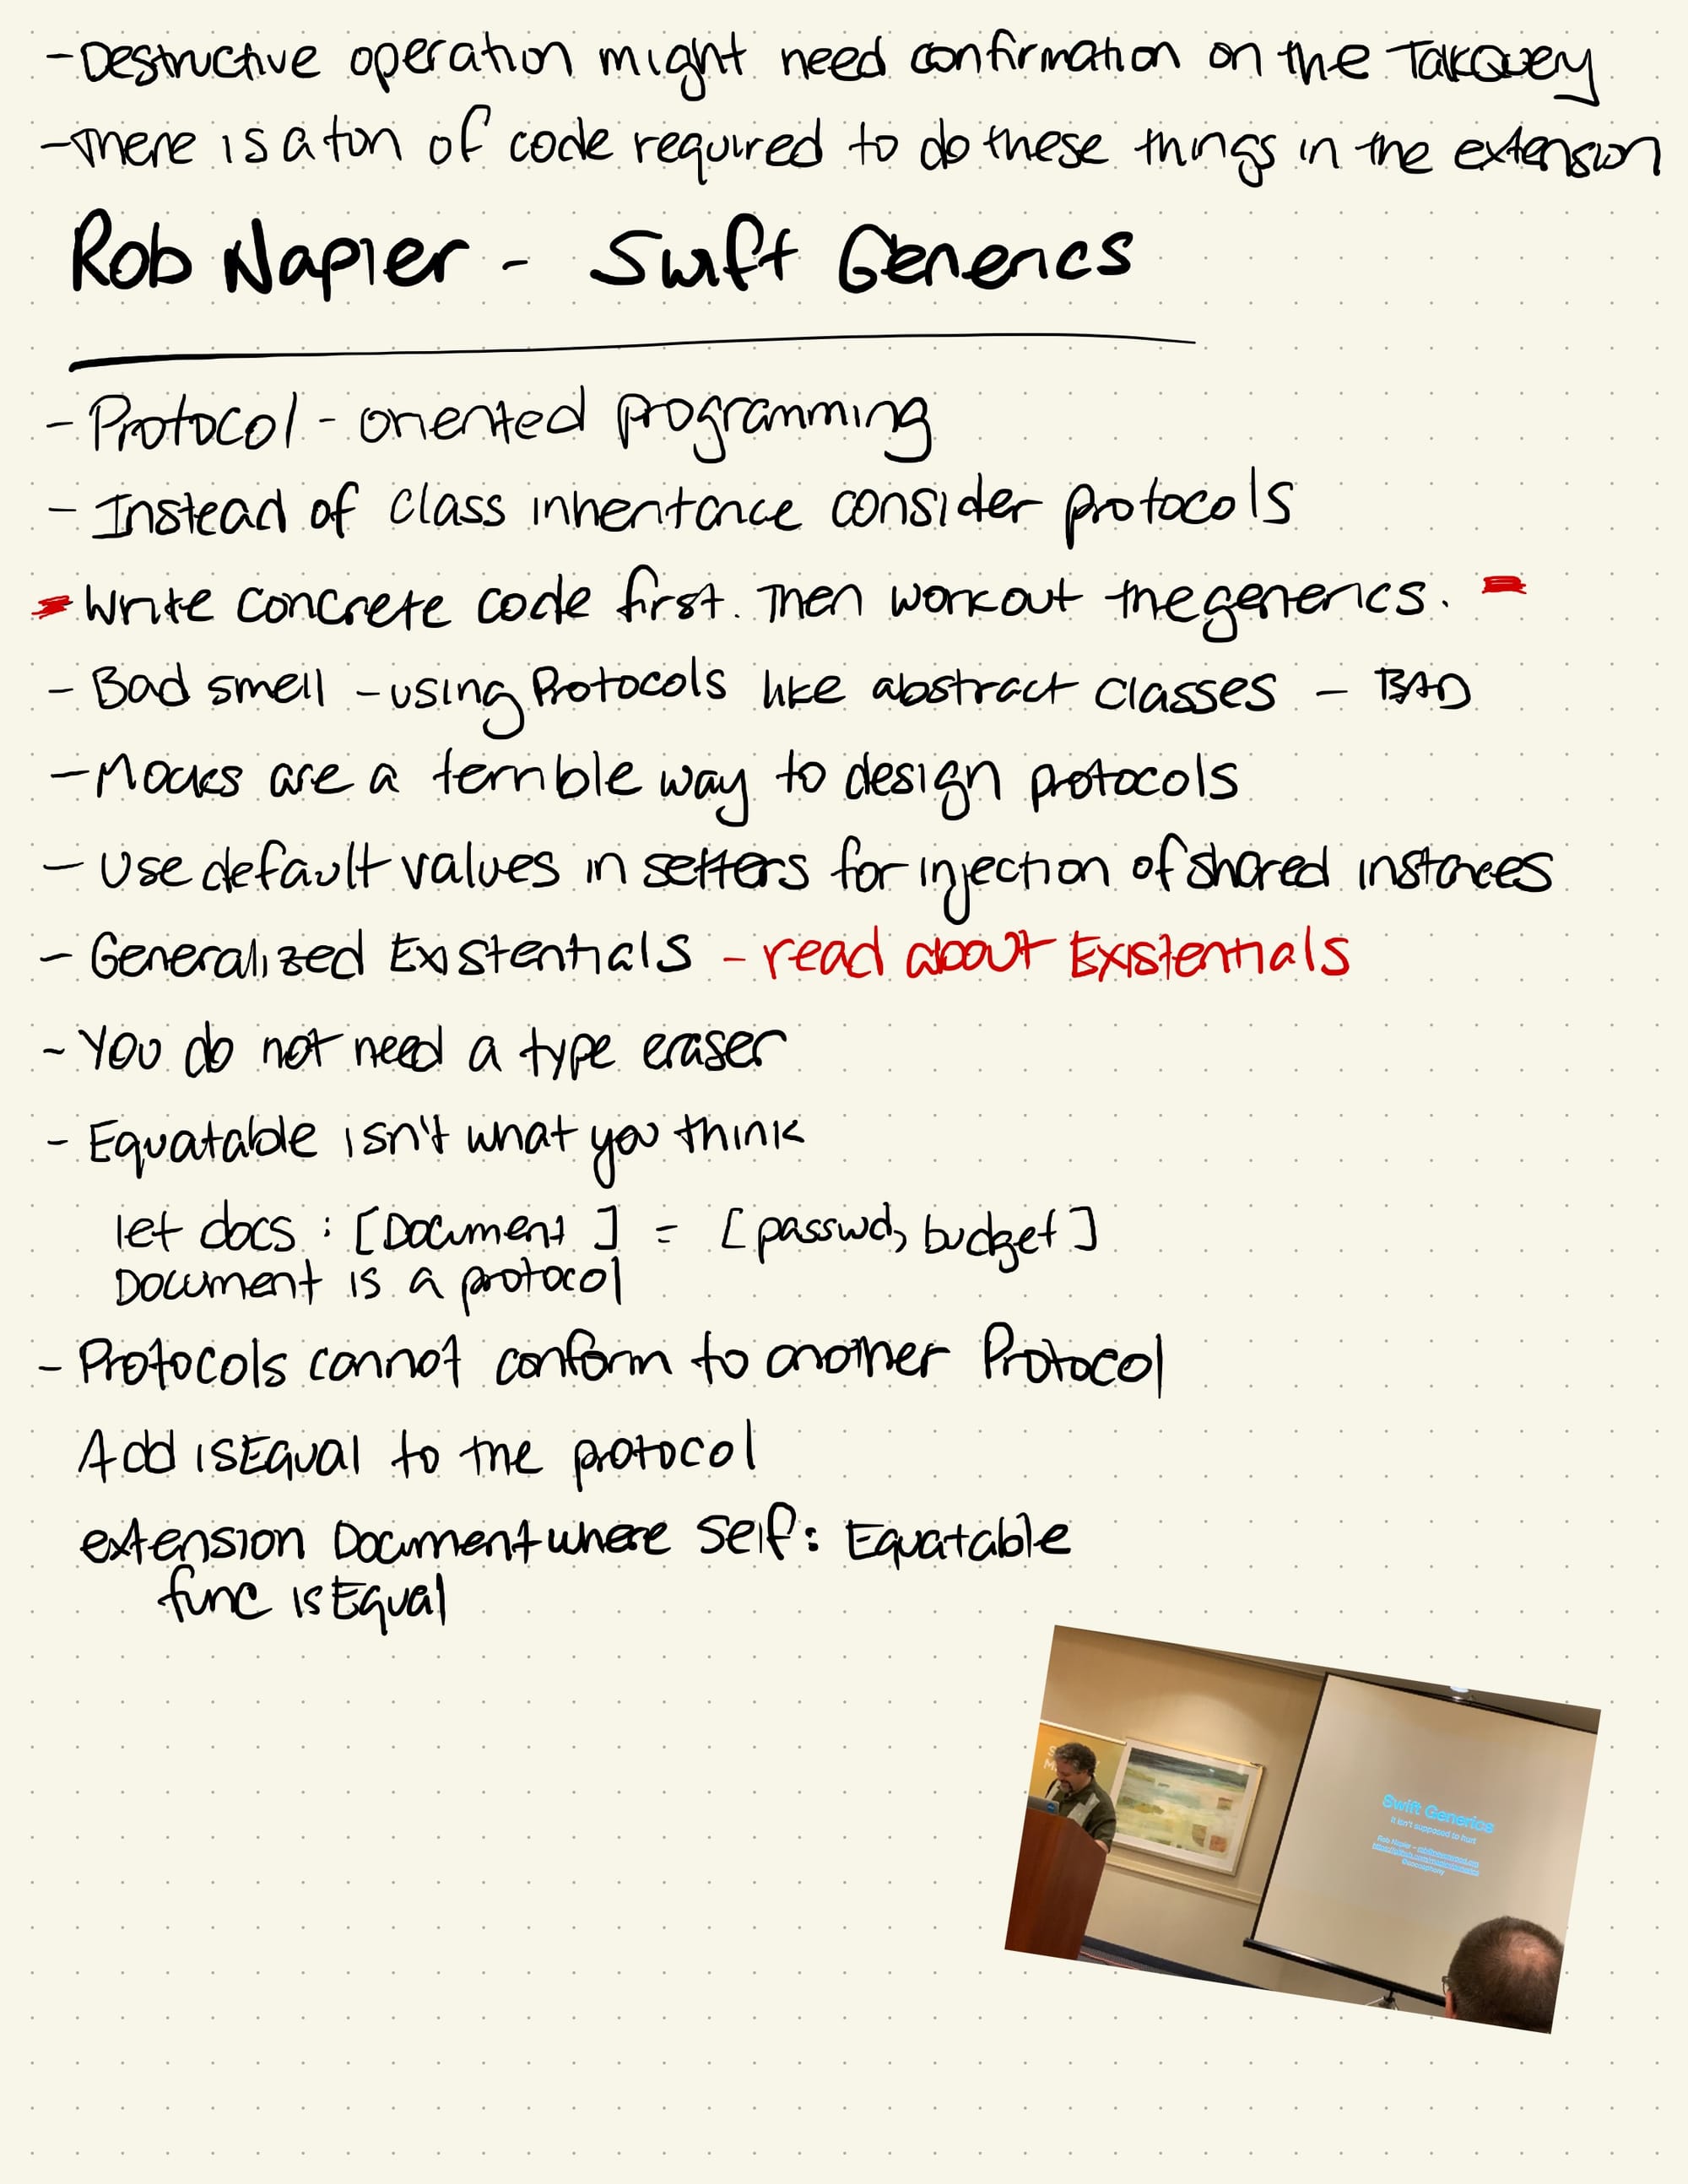 - Destructive operation might need confirmation on the
- There is a ton of code required to do these things in the extension
Rob Napier - Swift Generics
- Protocol - oriented programming
- Instead of class inheritance consider protocols
- Write concrete code first. Then work out the generics. -
- Bad smell - using Protocols like abstract classes - BAD
- Mocks are a terrible way to design protocols
- Use default values in setters for injection of shared instances
- Generalized Existentials - read about Existentials
- You do not need a type eraser
- Equatable isn't what you think
let docs : [Document ] = [passwd, budget]
Document is a protocol
- Protocols cannot conform to another Protocol
Add isEqual to the protocol
extension Document where Self: Equatable
func isEqual
Swift Generics
It isn't supposed to hurt